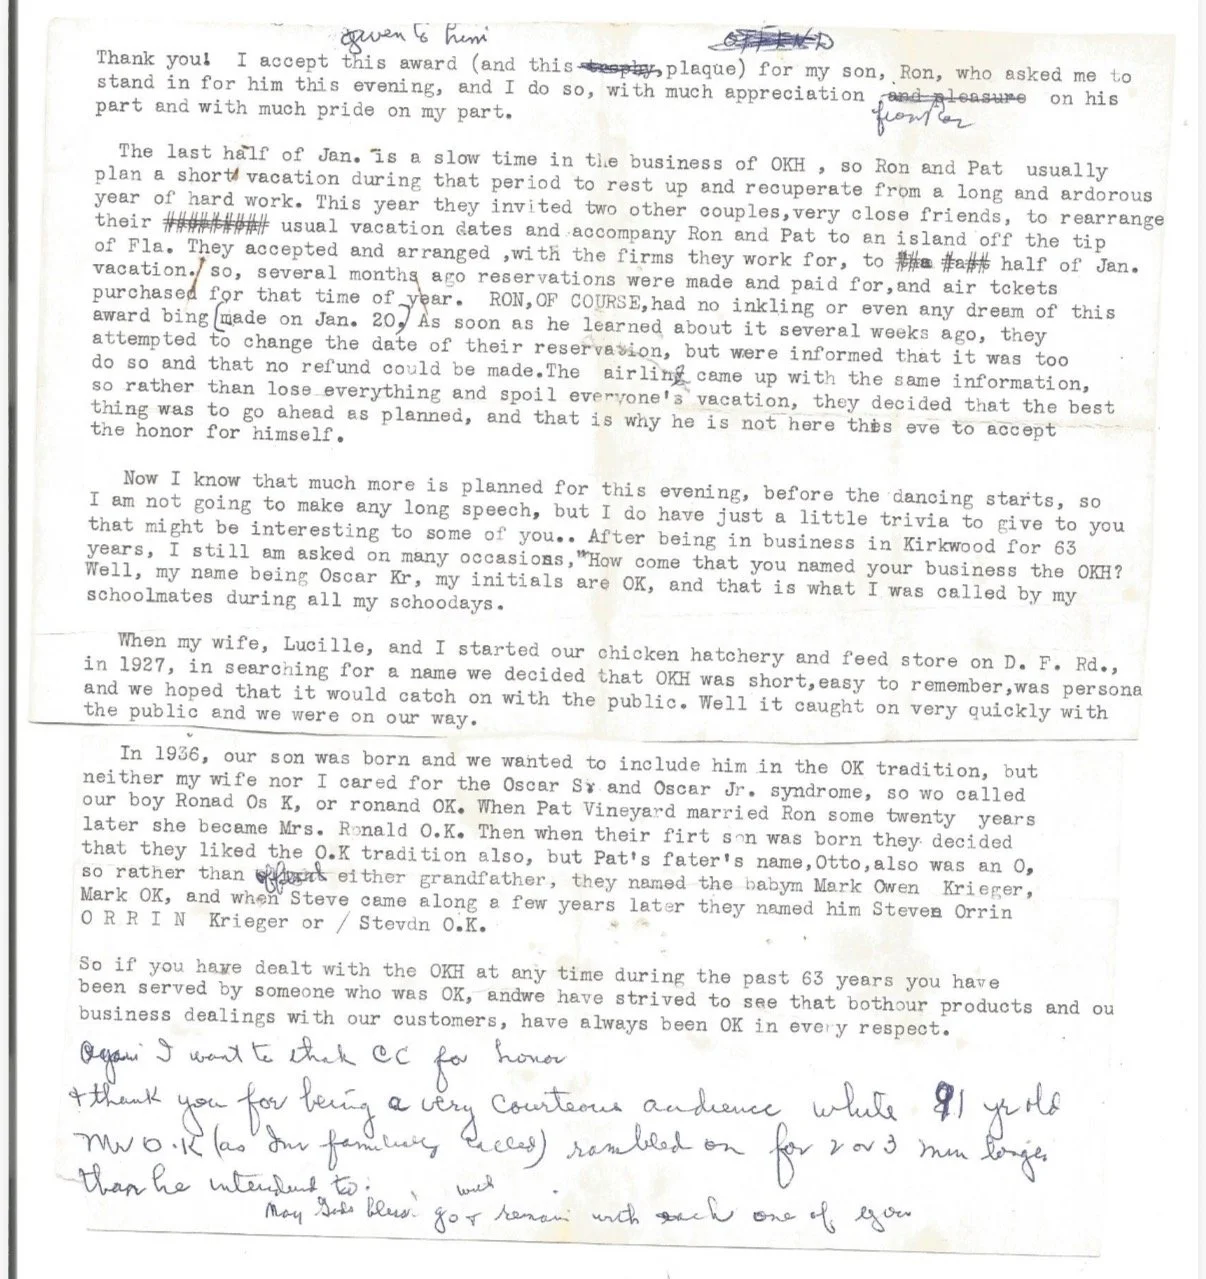 given to him OFFEND
Thank you! I accept this award (and this trophy, plaque) for my son, Ron, who asked me to
stand in for him this evening, and I do so, with much appreciation and pleasure on his
part and with much pride on my part. from Ron
The last half of Jan. is a slow time in the business of OKH , so Ron and Pat usually
plan a short vacation during that period to rest up and recuperate from a long and ardorous
year of hard work. This year they invited two other couples,very close friends, to rearrange
their ######### usual vacation dates and accompany Ron and Pat to an island off the tip
of Fla. They accepted and arranged ,with the firms they work for, to half of Jan.
vacation./ so, several months ago reservations were made and paid for,and air tckets
purchased for that time of year. RON,OF COURSE,had no inkling or even any dream of this
award bing (made on Jan. 20,) As soon as he learned about it several weeks ago, they
attempted to change the date of their reservation, but were informed that it was too
do so and that no refund could be made.The airling came up with the same information,
so rather than lose everything and spoil everyone's vacation, they decided that the best
thing was to go ahead as planned, and that is why he is not here this eve to accept
the honor for himself.
Now I know that much more is planned for this evening, before the dancing starts, so
I am not going to make any long speech, but I do have just a little trivia to give to you
that might be interesting to some of you.. After being in business in Kirkwood for 63
years, I still am asked on many occasions,"How come that you named your business the OKH?
Well, my name being Oscar Kr, my initials are OK, and that is what I was called by my
schoolmates during all my schoodays.
When my wife, Lucille, and I started our chicken hatchery and feed store on D. F. Rd.,
in 1927, in searching for a name we decided that OKH was short,easy to remember,was persona
and we hoped that it would catch on with the public. Well it caught on very quickly with
the public and we were on our way.
In 1936, our son was born and we wanted to include him in the OK tradition, but
neither my wife nor I cared for the Oscar Sr and Oscar Jr. syndrome, so wo called
our boy Ronad Os K, or ronand OK. When Pat Vineyard married Ron some twenty years
later she became Mrs. Ronald O.K. Then when their firt son was born they decided
that they liked the O.K tradition also, but Pat's fater's name,Otto,also was an O,
so rather than offend either grandfather, they named the babym Mark Owen Krieger,
Mark OK, and when Steve came along a few years later they named him Steven Orrin
O R R I N Krieger or / Stevdn O.K.
So if you have dealt with the OKH at any time during the past 63 years you have
been served by someone who was OK, andwe have strived to see that bothour products and ou
business dealings with our customers, have always been OK in every respect.
Again I want to thank CC for honor
+ thank you for being a very courteous audience while 91 yr old
Mr O.K (as Im familiarly called) rambled on for 2 or 3 min longer
than he intended to.
with
May Gods bless. go + remain with each one of you